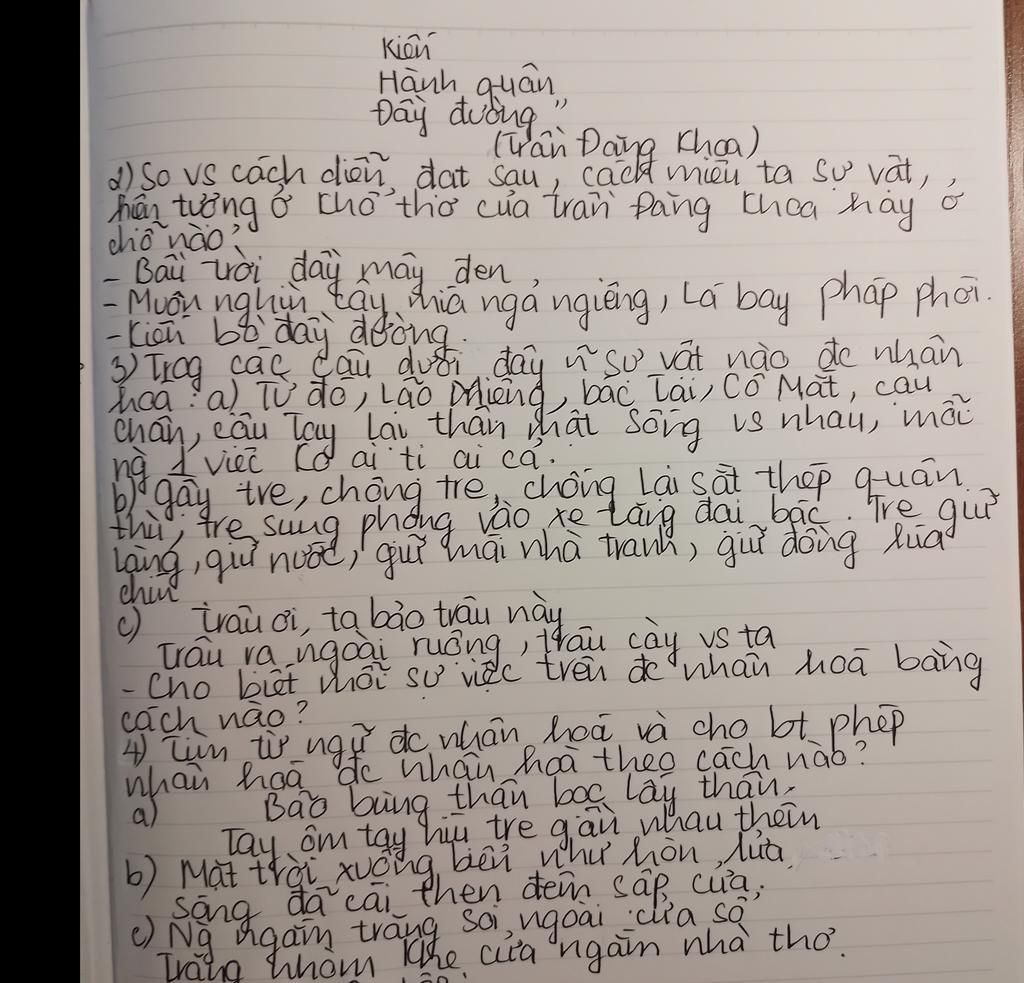 Kiến
Hành quân
Đầy đường"
(Trần Đăng Khoa)
2) So vs cách diễn đạt sau, cách miêu tả sự vật,
hiện tượng ở khổ thơ của Trần Đăng Khoa hay ở
chỗ nào?
- Bầu trời đầy mây đen,
- Muôn nghìn cây mía ngả nghiêng, lá bay phấp phới.
- Kiến bò đầy đường.
3) Trog các câu dưới đây n~ sự vật nào đc nhân
hoá: a) Từ đó, Lão Miệng, bác Tai, Cô Mắt, cậu
chân, cậu Tay lại thân mật sống vs nhau, mỗi
ng 1 việc ko ai tị ai cả.
b) gậy tre, chông tre, chống lại sắt thép quân
thù, tre sung phong vào xe tăng đại bác. Tre giữ
làng, giữ nước, giữ mái nhà tranh, giữ đồng lúa
chín
c) Trâu ơi, ta bảo trâu này
Trâu ra ngoài ruộng, trâu cày vs ta
- Cho biết mỗi sự việc trên đc nhân hoá bằng
cách nào?
4) Tìm từ ngữ đc nhân hoá và cho bt phép
nhân hoá đc nhân hoá theo cách nào?
a) Bão bùng thân bọc lấy thân,
Tay ôm tay níu tre gần nhau thêm
b) Mặt trời xuống biển như hòn lửa
sóng đã cài then đêm sập cửa,
c) Ng ngắm trăng soi ngoài cửa sổ
Trăng nhòm khe cửa ngắm nhà thơ.